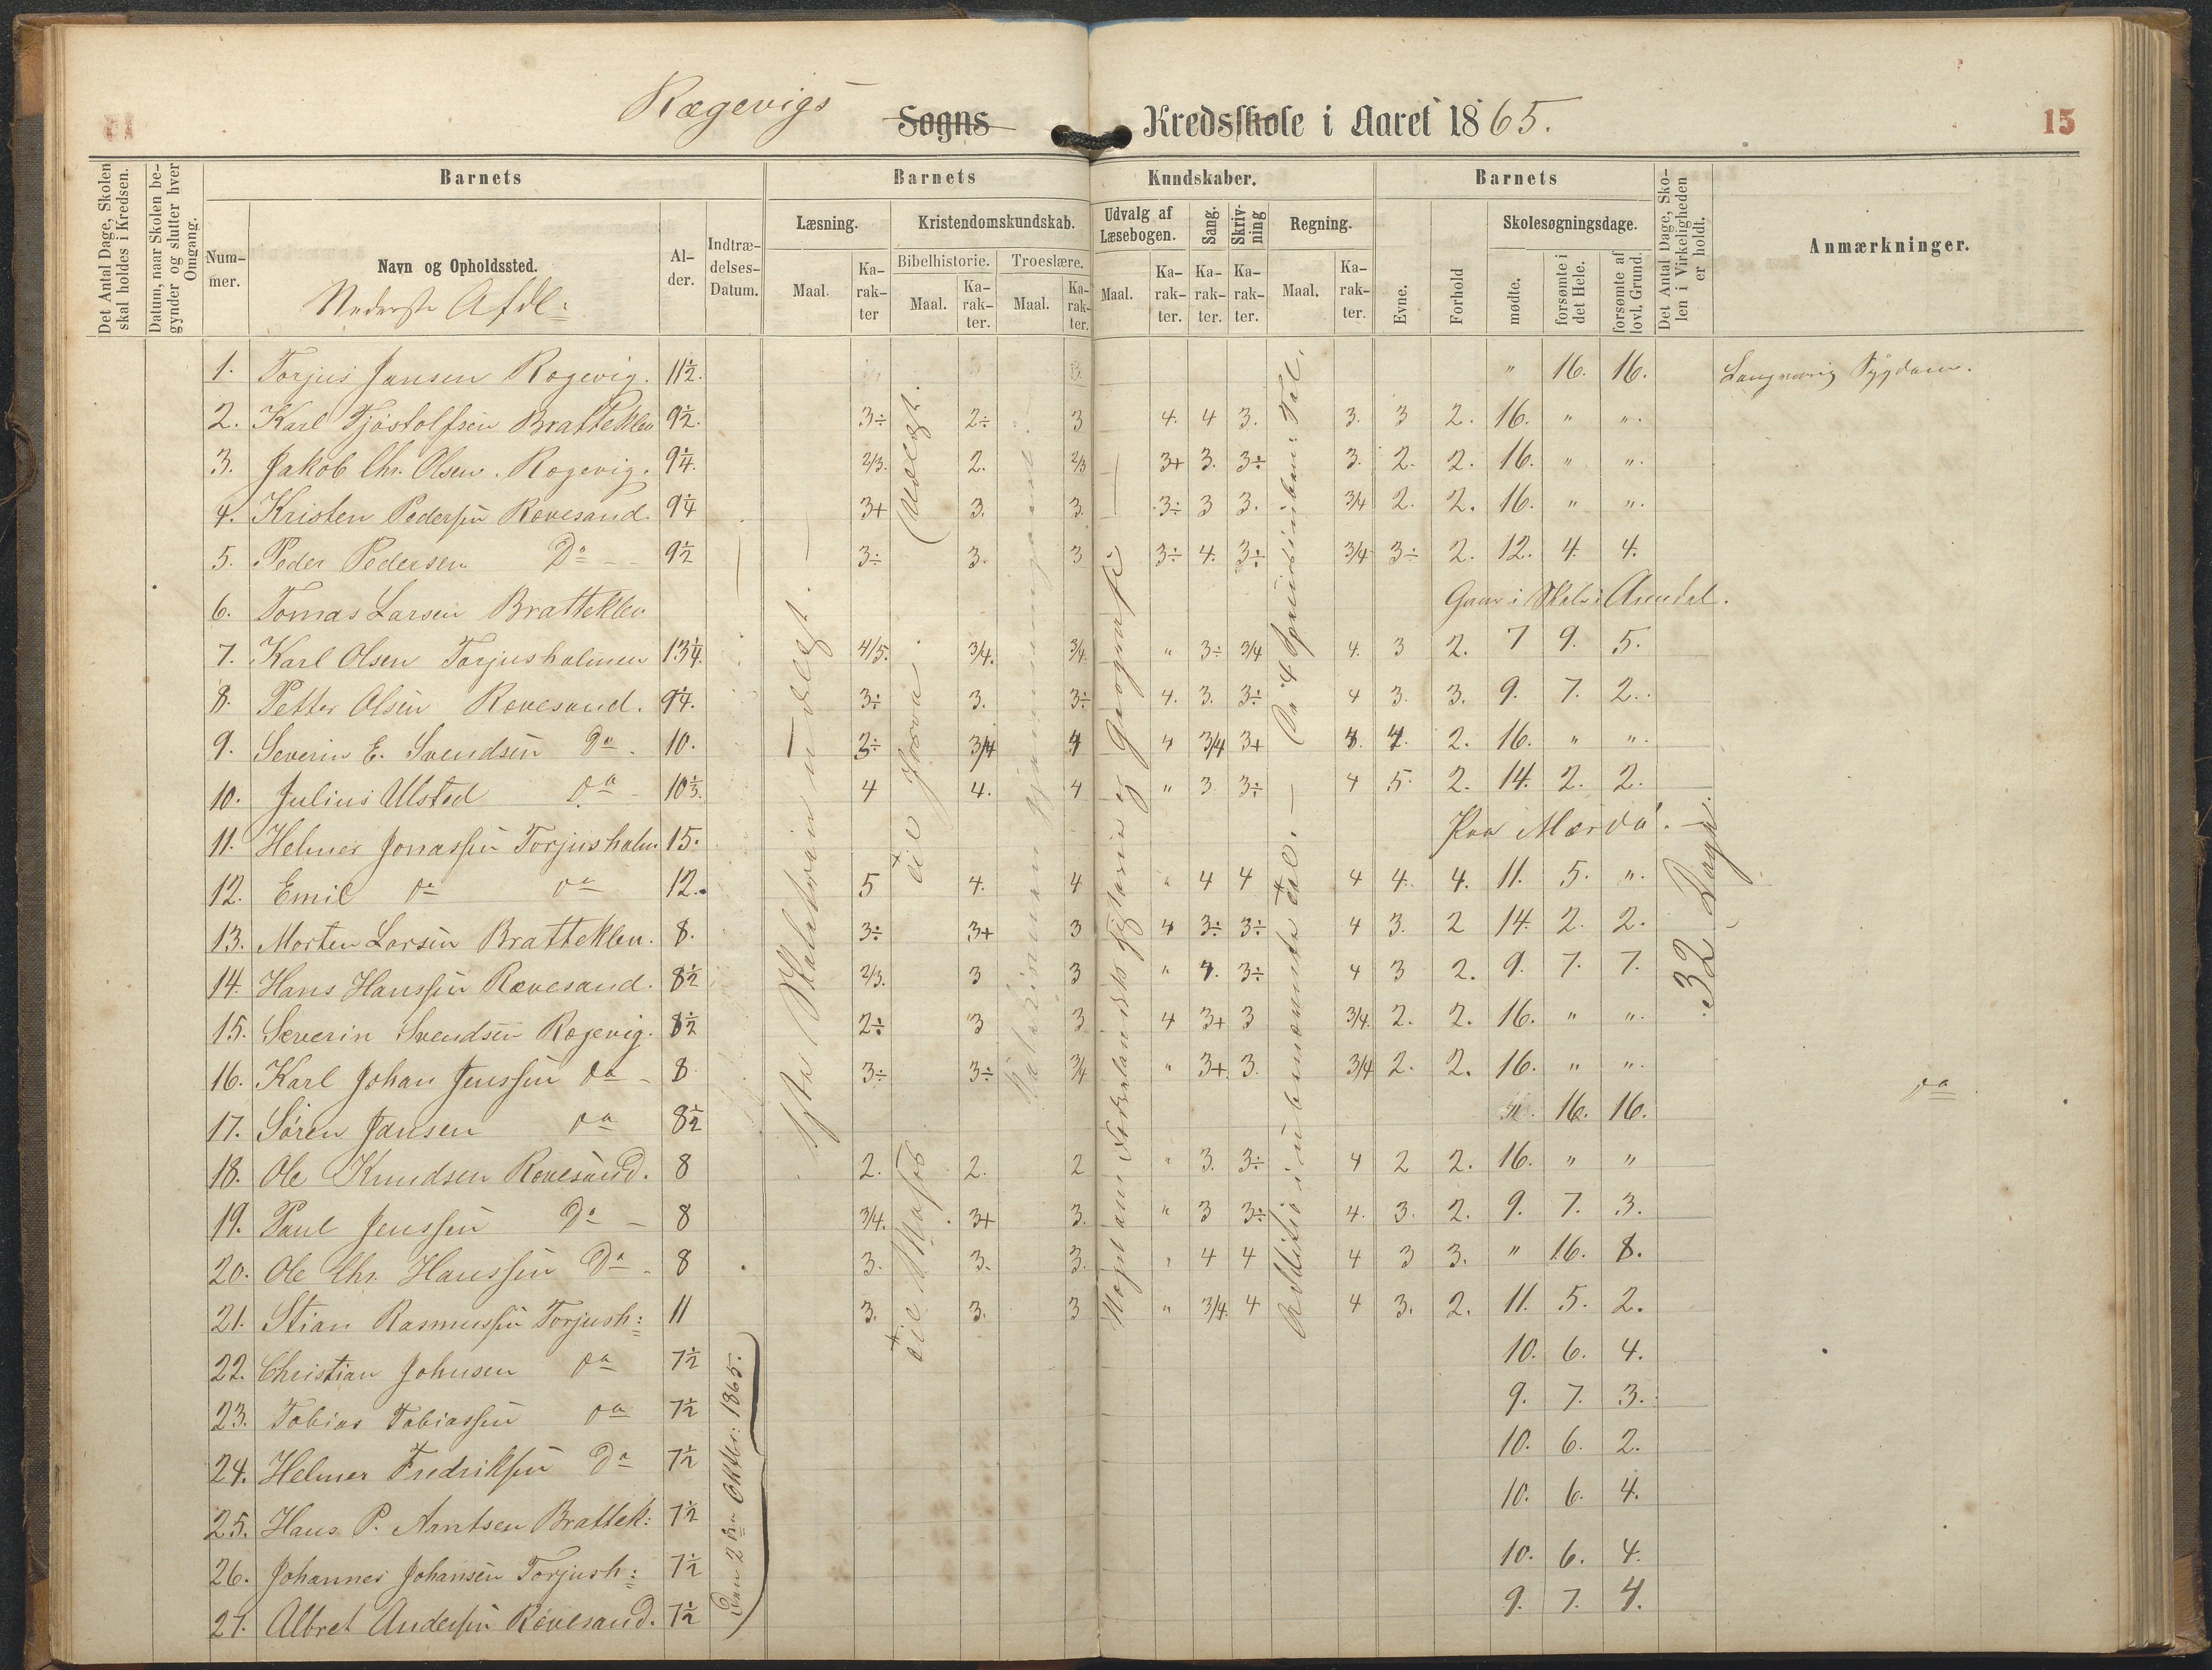 Rægevigs Sogns Kredsskole i Aaret 1865.
15
Det Antal Dage, Skolen skal holdes i Kredsen.
Datum, naar Skolen begynder og slutter hver Omgang.
Barnets
Nummer.
Navn og Opholdssted.
Nederste Afdl:
Alder.
Indtrædelses-Datum.
Barnets Kundskaber.
Læsning.
Maal.
Karakter
Kristendomskundskab.
Bibelhistorie.
Maal.
Karakter.
Troeslære.
Maal.
Karakter.
Udvalg af Læsebogen.
Maal.
Karakter.
Sang.
Karakter.
Skrivning
Karakter.
Regning.
Maal.
Karakter.
Barnets
Evne.
Forhold
Skolesøgningsdage.
mødte.
forsømte i det Hele.
forsømte af lovl. Grund.
Det Antal Dage, Skolen i Virkeligheden er holdt.
Anmærkninger.
1. Torjus Jansen Rogevig. 11½. " 16. 16. Langvarig Sygdom.
2. Karl Tjøstolfsen Bratteklev 9½. 3÷ 2÷ 3 4. 4 3. 3. 3 2. 16. " ".
3. Jakob Chr. Olsen. Rogevig. 9¼. 2/3. 2. 2/3 3+ 3. 3÷ 3. 2. 2. 16. " ".
4. Kristen Pedersen Rovesand. 9¼ 3+ 3. 3. 3÷ 3 3. 3/4 2. 2. 16. " ".
5. Peder Pedersen Do 9½ 3÷ 3. 3 3÷ 4. 3÷ 3/4 3÷ 2. 12. 4. 4.
6. Tomas Larsen Bratteklev Gaar i Skole i Arendal.
7. Karl Olsen Torjusholmen 13¼. 4/5. 3/4. 3/4. " 3÷ 3/4 4. 3 2. 7 9. 5.
8. Petter Olsen Rovesand. 9¼. 3÷ 3. 3÷ 4. 3. 3÷ 4 3. 3. 9. 7. 2.
9. Severin E. Svendsen Do. 10. 3÷ 3/4 4 4 3/4 3+ 4. 4. 2. 16. " ".
10. Julius Ulsted do 10⅓. 4 4. 4 " 3 3÷ 4 5. 2. 14. 2. 2.
11. Helmer Jonassen Torjusholm 15. Paa Mærdø.
12. Emil do do 12. 5 4. 4 " 4 4 4 4. 4. 11. 5. ".
13. Morten Larsen Bratteklev. 8. 3÷ 3+ 3 4 3÷ 3÷ 4 3. 2 14. 2. 2.
14. Hans Hanssen Rævesand. 8½ 2/3. 3 3 " 4. 3÷ 4 3 2. 9. 7. 7.
15. Severin Svendsen Rogevig. 8½ 2÷ 3 3 4 3+ 3 3/4. 2. 2. 16. " ".
16. Karl Johan Jenssen do 8 3÷ 3÷ 3/4 " 3+. 3. 3/4 2. 2. 16. " ".
17. Søren Jansen do 8½ ". 16. 16. do
18. Ole Knudsen Rovesand. 8 2. 2. 2 " 3. 3÷ 4 2 2. 16. " "
19. Paul Jenssen Do 8 3/4. 3+ 3. " 3 3÷ 4. 3. 2. 9. 7. 3.
20. Ole Chr. Hanssen Do 8 3. 3. 3. " 4 4 4 3 3. " 16. 8.
21. Stian Rasmussen Torjush: 11 3. 3. 3 " 3/4. 4 4 3. 2. 11. 5. 2.
22. Christian Johnsen do 7½ 10. 6. 4.
23. Tobias Tobiassen do 7½ 9. 7. 3.
24. Helmer Fredriksen Do 7½ 10. 6. 2.
25. Hans P. Arntsen Brattek: 7½ 10. 6. 4.
26. Johannes Johansen Torjush: 7½ 10. 6. 4.
27. Albret Andersen Rovesand. 7½ 9. 7. 4.
Den 2den Oktbr: 1865.
32 Dage.